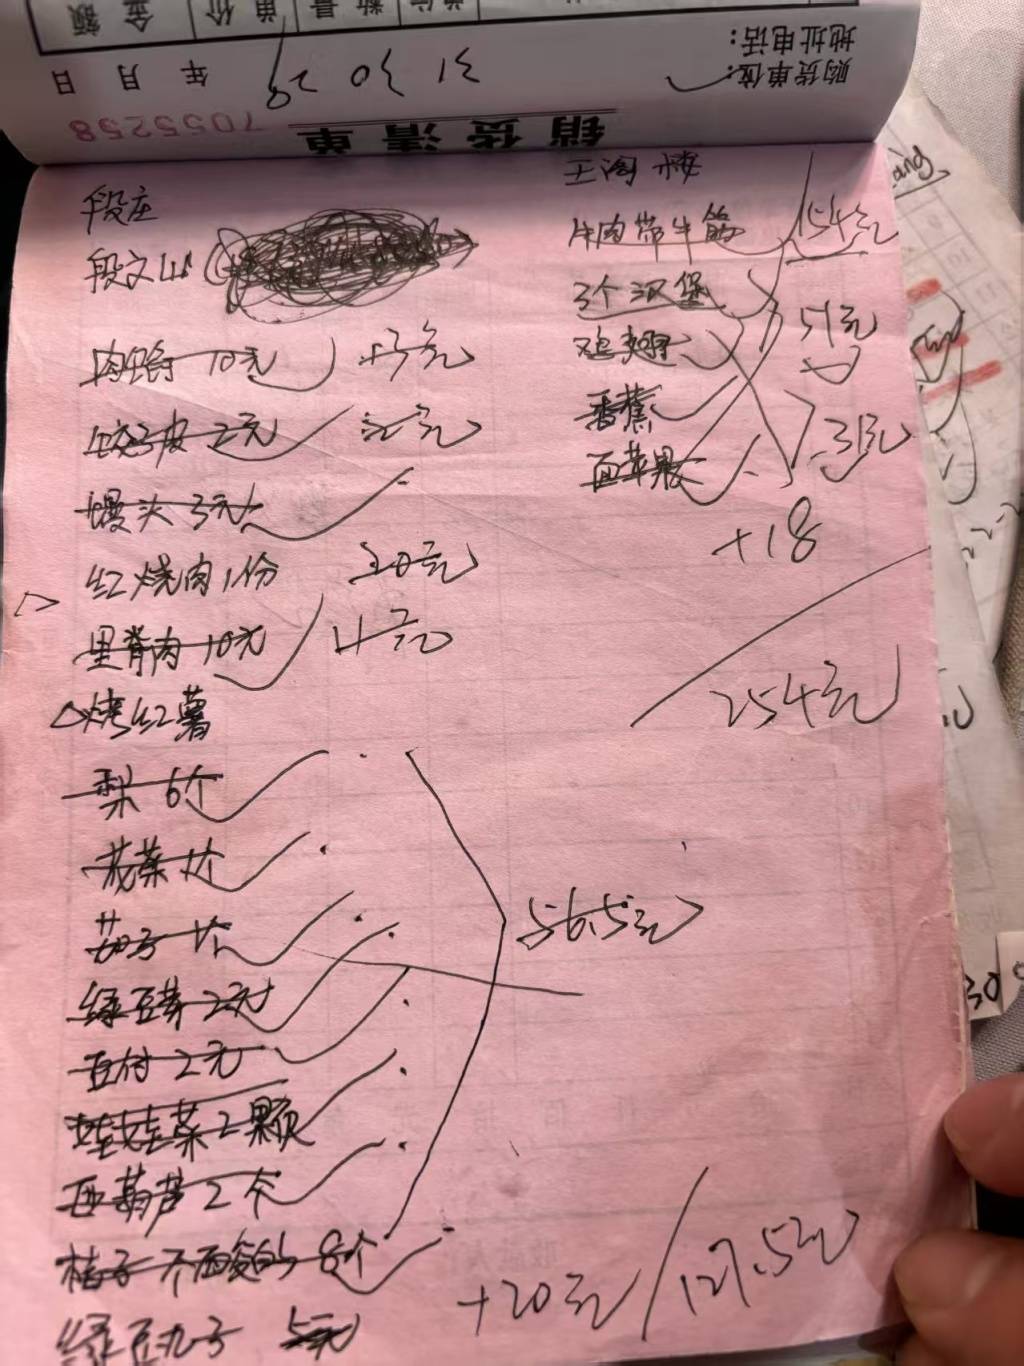 金额 单价 数量
年 月 日
购货单位:
地址电话:
7055258
销货清单
段庄
段文山
肉 10元
饺子皮 2元
馒头 3元
红烧肉1份 20元
里脊肉 10元 4元
烤红薯
梨 6个
花菜 1个
茄子 1个
绿豆芽 2元
豆付 2元
娃娃菜 2颗
西葫芦 2个
桔子 不要酸的 8个
绿豆丸子 5元
56.5元
+20元 127.5元
王阁楼
牛肉带牛筋 154元
3个汉堡 51元
鸡翅
香蕉 31元
面苹果
+18
254元